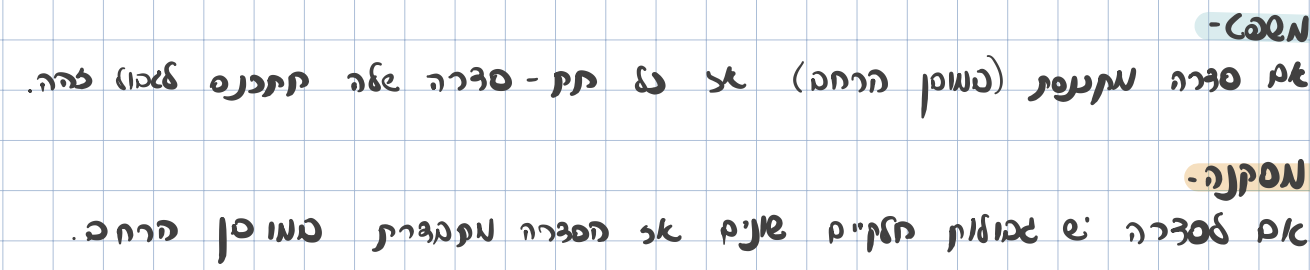 משפט-
אם סדרה מתכנסת (במובן הרחב) אז כל תת-סדרה שלה תתכנס לגבול זהה.
מסקנה-
אם לסדרה יש גבולות חלקיים שונים אז הסדרה מתבדרת במובן הרחב.